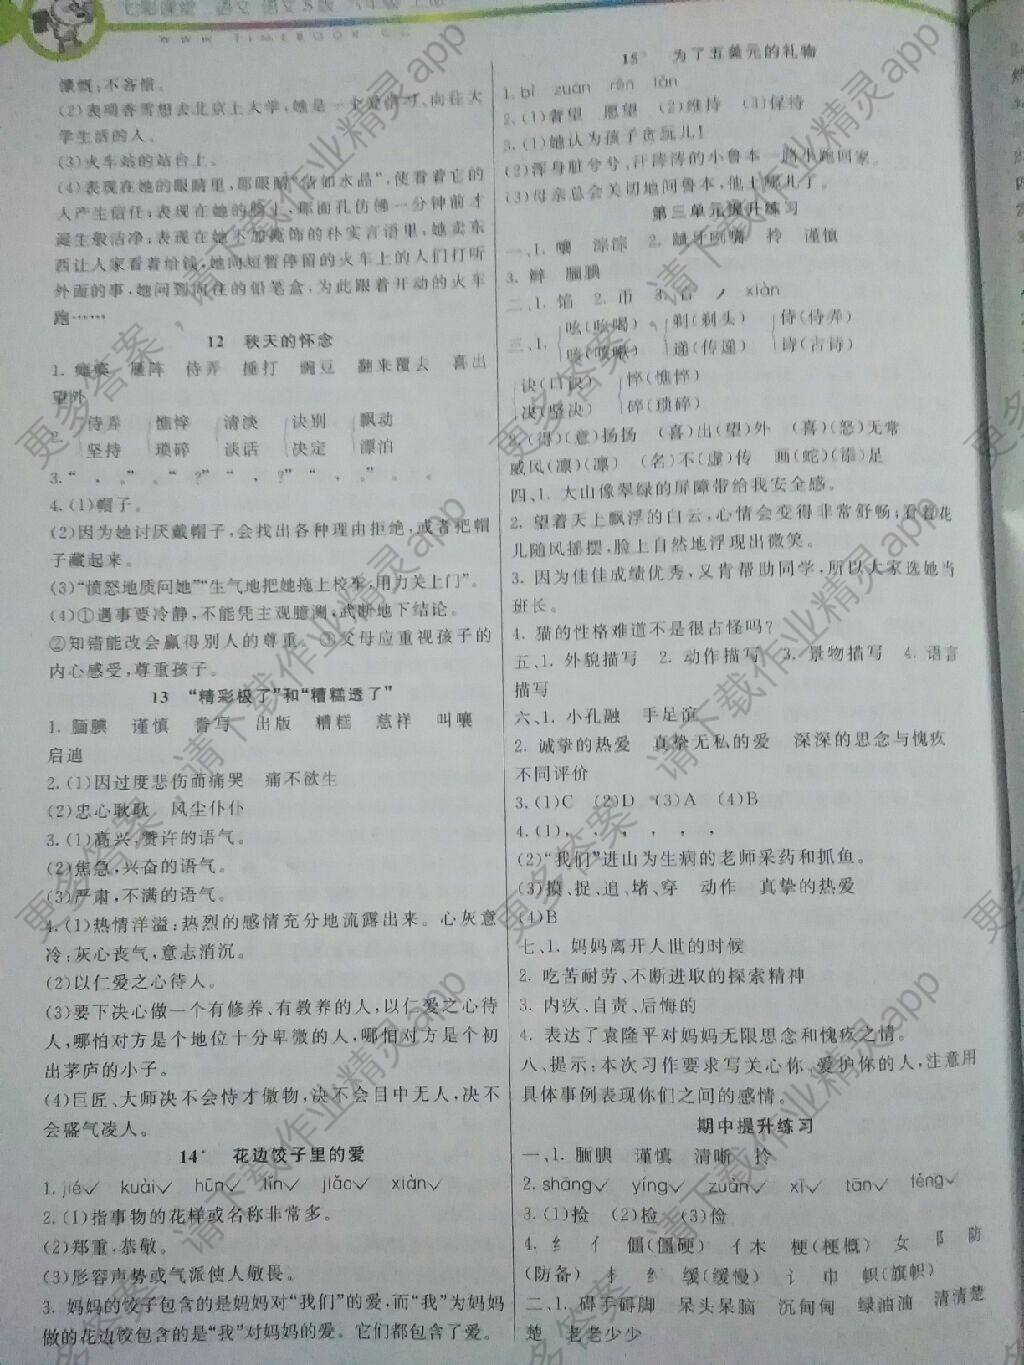 七彩课堂 语文 语文S版 六年级 上册
慷慨;不吝惜。
(2)表明香雪想去北京上大学,她是一个爱学习、向往大
学生活的人。
(3)火车站的站台上。
(4)表现在她的眼睛里,那眼睛“洁如水晶”,使看着它的
人产生信任;表现在她的脸上,那面孔仿佛一分钟前才
诞生般洁净;表现在她不加掩饰的朴实言语里,她卖东
西让人家看着给钱,她向短暂停留的火车上的人们打听
外面的事,她问到向往的铅笔盒,为此跟着开动的火车
跑……
12 秋天的怀念
1. 瘫痪 雁阵 侍弄 捶打 豌豆 翻来覆去 喜出
望外
2. 侍弄 憔悴 清淡 诀别 飘动
坚持 琐碎 谈话 决定 漂泊
3. “ , 。” 。 “ ?” “ , 。” 。 。
4. (1)帽子。
(2)因为她讨厌戴帽子,会找出各种理由拒绝,或者把帽
子藏起来。
(3)“愤怒地质问她”“生气地把她拖上校车,用力关上门”。
(4)①遇事要冷静,不能凭主观臆测,武断地下结论。
②知错能改会赢得别人的尊重。③父母应重视孩子的
内心感受,尊重孩子。
13 “精彩极了”和“糟糕透了”
1. 腼腆 谨慎 誊写 出版 糟糕 慈祥 叫嚷
启迪
2. (1)因过度悲伤而痛哭 痛不欲生
(2)忠心耿耿 风尘仆仆
3. (1)高兴,赞许的语气。
(2)焦急,兴奋的语气。
(3)严肃,不满的语气。
4. (1)热情洋溢:热烈的感情充分地流露出来。心灰意
冷:灰心丧气,意志消沉。
(2)以仁爱之心待人。
(3)要下决心做一个有修养、有教养的人,以仁爱之心待
人,哪怕对方是个地位十分卑微的人,哪怕对方是个初
出茅庐的小子。
(4)巨匠、大师决不会恃才傲物,决不会目中无人,决不
会盛气凌人。
14* 花边饺子里的爱
1. jié✓ kuài✓ hūn✓ lín✓ jiǎo✓ xiàn✓
2. (1)指事物的花样或名称非常多。
(2)郑重,恭敬。
(3)形容声势或气派使人敬畏。
3. 妈妈的饺子包含的是妈妈对“我们”的爱,而“我”为妈妈
做的花边饺包含的是“我”对妈妈的爱。它们都包含了爱。
15* 为了五美元的礼物
1. bǐ zuàn rěn làn
2. (1)奢望 愿望 (2)维持 (3)保持
3. (1)她认为孩子贪玩儿!
(2)浑身脏兮兮,汗涔涔的小鲁本一路小跑回家。
(3)母亲总会关切地问鲁本,他上哪儿了。
第三单元提升练习
一、1. 嚷 涔涔 2. 龇牙咧嘴 拎 谨慎
3. 辫 腼腆
二、1. 馅 2. 币 3. 音 ノ xiàn
三、1. 吆(吆喝) 剃(剃头) 侍(侍弄)
咳(咳嗽) 递(传递) 诗(古诗)
诀(口诀) 悴(憔悴)
决(坚决) 碎(琐碎)
2. (得)(意)扬扬 (喜)出(望)外 (喜)(怒)无常
威风(凛)(凛) (名)不(虚)传 画(蛇)(添)足
四、1. 大山像翠绿的屏障带给我安全感。
2. 望着天上飘浮的白云,心情会变得非常舒畅;看着花
儿随风摇摆,脸上自然地浮现出微笑。
3. 因为佳佳成绩优秀,又肯帮助同学,所以大家选她当
班长。
4. 猫的性格难道不是很古怪吗?
五、1. 外貌描写 2. 动作描写 3. 景物描写 4. 语言
描写
六、1. 小孔融 手足谊
2. 诚挚的热爱 真挚无私的爱 深深的思念与愧疚
不同评价
3. (1)C (2)D (3)A (4)B
4. (1), . , , , ,
(2)“我们”进山为生病的老师采药和抓鱼。
(3)摸、捉、追、堵、穿 动作 真挚的热爱
(4)B
七、1. 妈妈离开人世的时候
2. 吃苦耐劳、不断进取的探索精神
3. 内疚、自责、后悔的
4. 表达了袁隆平对妈妈无限思念和愧疚之情。
八、提示:本次习作要求写关心你、爱护你的人,注意用
具体事例表现你们之间的感情。
期中提升练习
一、1. 腼腆 谨慎 清晰 拎
2. shāng✓ yíng✓ zuàn✓ xī✓ tān✓ téng✓
3. (1)捡 (2)检 (3)俭
4. 纟 亻 僵(僵硬) 亻 木 梗(梗概) 女 阝 防
(防备) 扌 纟 缓(缓慢) 讠 巾 帜(旗帜)
二、1. 碍手碍脚 呆头呆脑 沉甸甸 绿油油 清清楚
楚 老老少少
更多答案,请下载作业精灵app